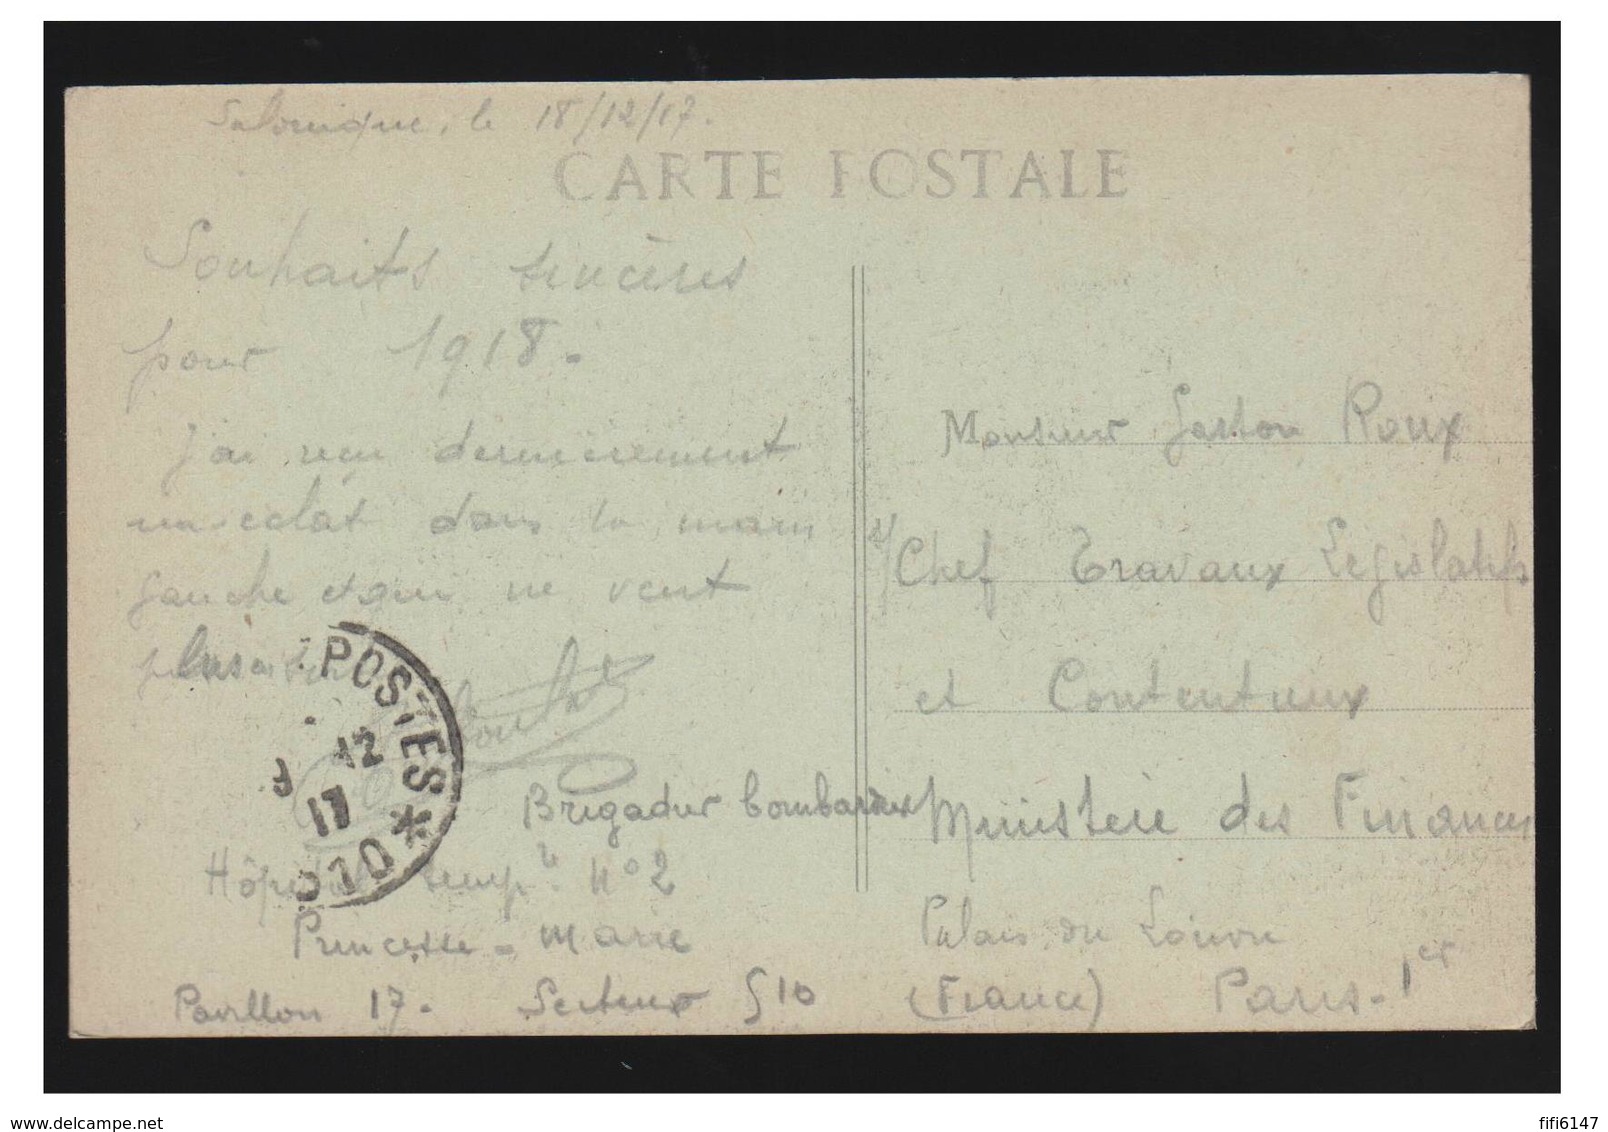 Salonique, le 18/12/17.
CARTE POSTALE
Souhaits sincères
pour 1918.
J'ai reçu dernièrement
un éclat dans la main
gauche et qui ne veut
plus
Brigadier bombardier
Hôpital temp.re No 2
Princesse-Marie
Pavillon 17. Secteur 510
POSTES * 510
12
17
Monsieur Gaston Roux
s/ Chef Travaux Législatifs
et Contentieux
Ministère des Finances
Palais du Louvre
(France) Paris-1er
delcampe.net
fifi6147